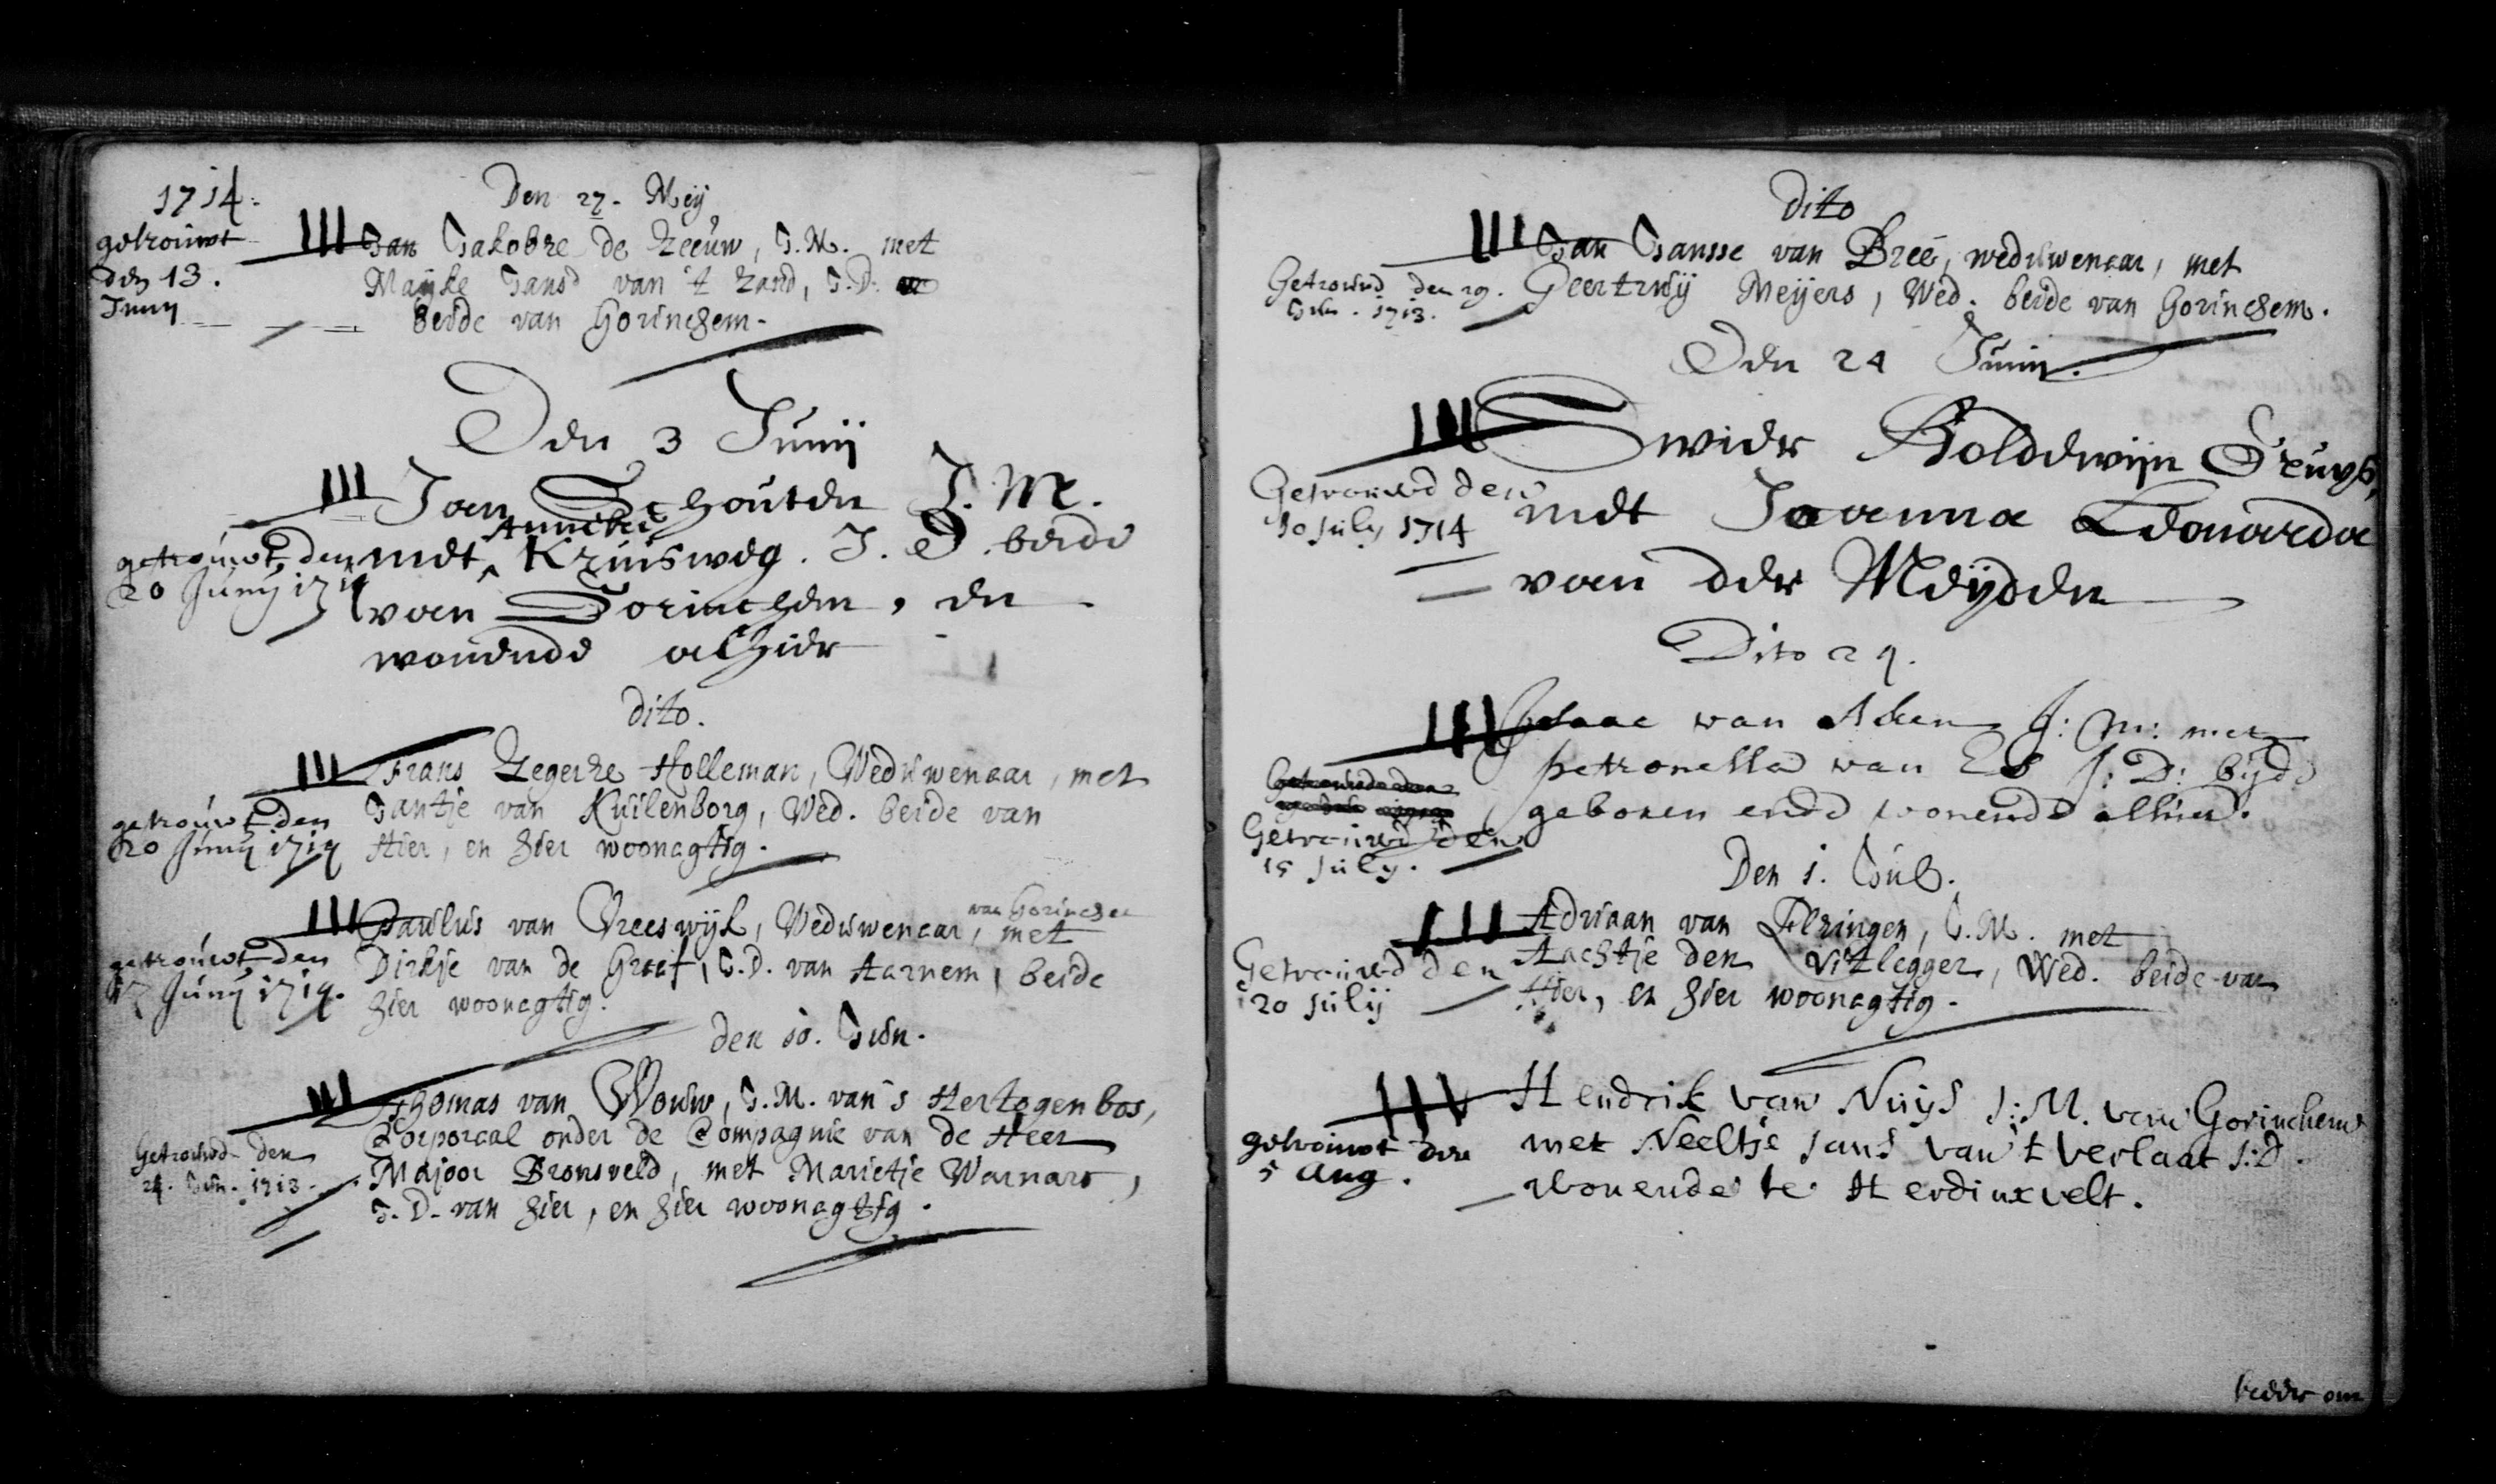 1714.
Den 27. Meij
getrouwt
den 13.
Junij
III Jan Jakobze de Zeeuw, J.M. met
Mayke Jansd van 't Zand, J.D.
beide van Gorinchem.
Den 3 Junij
III Jan Schouten J.M.
Anneke
getrouwt den
20 Junij 1714
met ^ Kruisweg. J.D. beide
van Gorinchem, en
wonende alhier
dito.
III Frans Zegerze Holleman, Weduwenaar, met
getrouwt den
20 Junij 1714
Jantje van Kuilenborg, Wed. beide van
Hier, en hier woonagtig.
van Gorinchem
III Paulus van Vreeswijk, Weduwenaar, met
getrouwt den
17 Junij 1714.
Dirkje van de Graaf, J.D. van Aarnem, beide
hier woonagtig.
den 10. Jun.
III Thomas van Wouw, J.M. van 's Hertogenbos,
Corporaal onder de Compagnie van de Heer
Getrouwd den
24. Jun. 1713.
Majoor Bronsveld, met Marietje Warnars,
J.D. van hier, en hier woonagtig.
dito
III Jan Jansse van Breé, weduwenaar, met
Getrouwd den 29.
1713.
Geertruij Meijers, Wed. beide van Gorinchem.
Den 24 Junij.
III Swier Boldewijn
Getrouwd den
10 July 1714
met Joanna Edouarda
van der Meijden
Dito 24.
III Isaac van Aken J: M: met
petronella van Es J: D: byde
geboren ende wonende alhier.
Getrouwd den
15 July.
Den 1. Jul.
III Adriaan van Elzingen, J.M. met
Getrouwd den
20 Julij
Aachtje den Uitlegger, Wed. beide van
Hier, en hier woonagtig.
III Hendrik van Nuijs J:M. van Gorinchem
getrouwt den
5 Aug.
met Neeltje Jans van 't verlaat J:D.
wonende te Herdinxvelt.
keder om